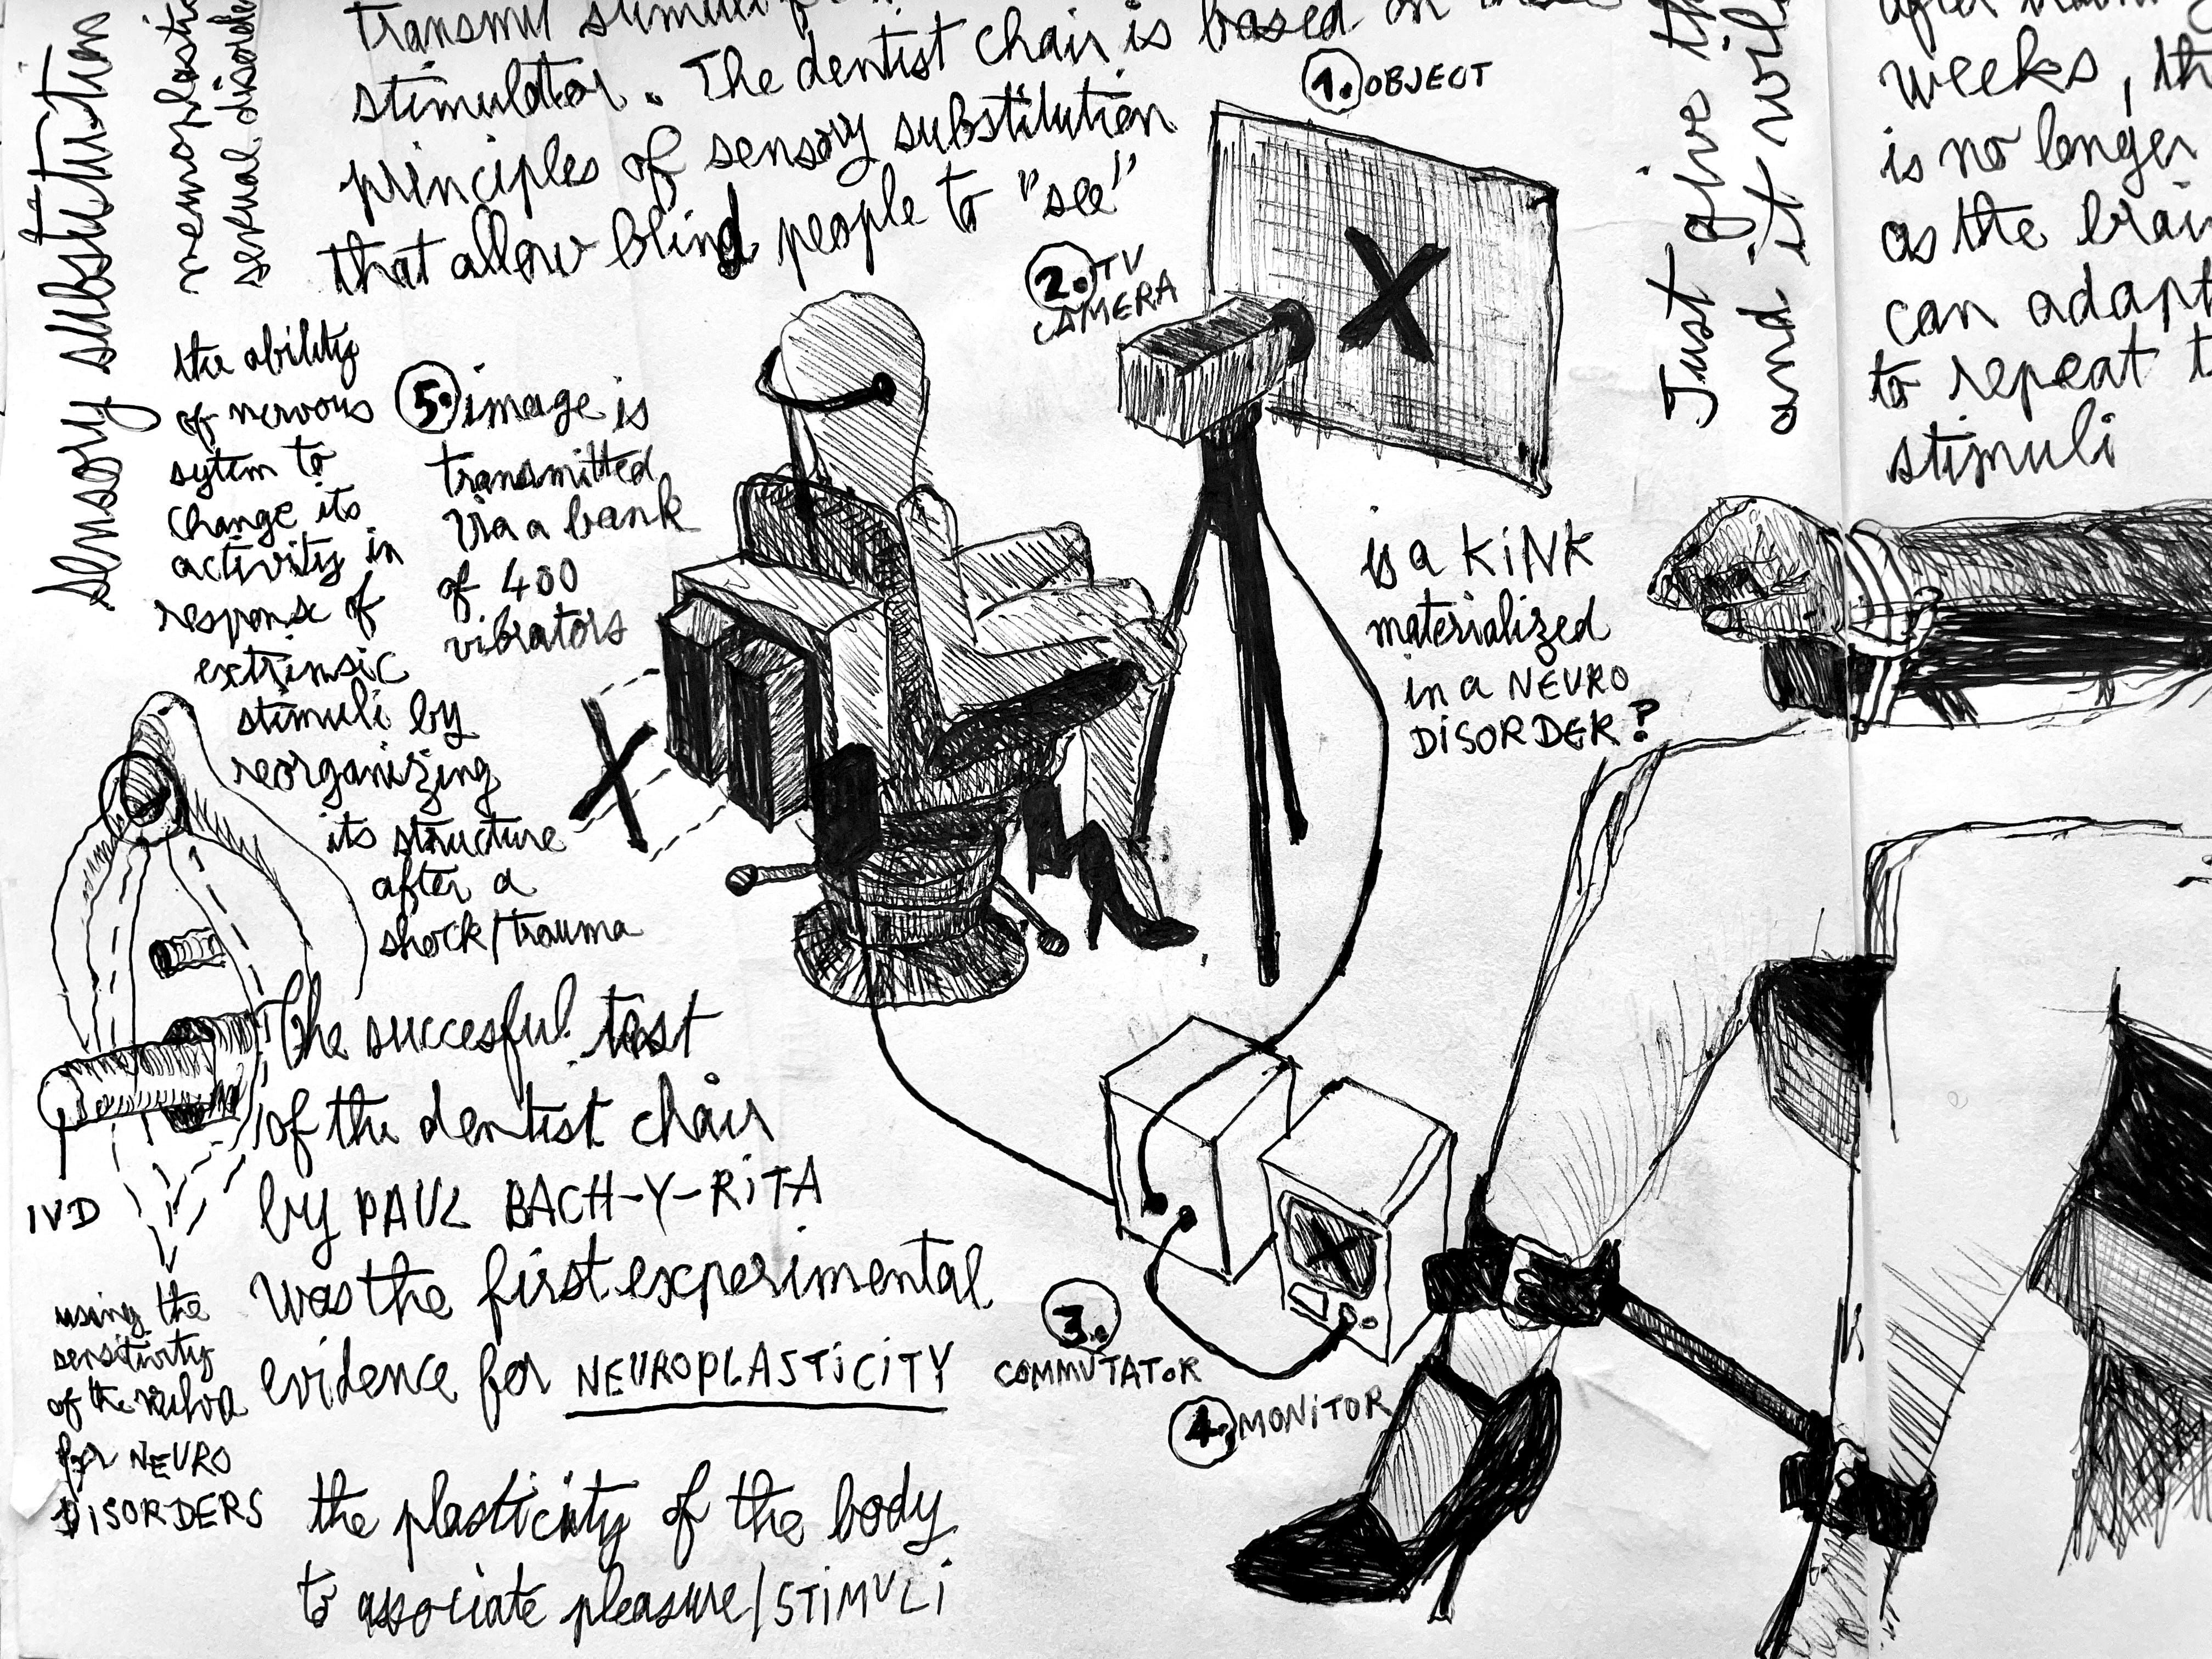 sensory substitution
sexual
transmit stimuli
stimulator. The dentist chair is based on
principles of sensory substitution
that allow blind people to "see"
1. OBJECT
2. TV
CAMERA
the ability
of nervous
sytem to
change its
activity in
response of
extrinsic
stimuli by
reorganizing
its structure
after a
shock/trauma
5. image is
transmitted
via a bank
of 400
vibrators
X
X
is a KiNK
materialized
in a NEURO
DiSORDER?
Just give
and it
weeks,
is no longer
as the
can adapt
to repeat
stimuli
The succesful test
of the dentist chair
by PAUL BACH-Y-RiTA
was the first experimental
evidence for NEUROPLASTiCiTY
X
3.
COMMUTATOR
4. MONiTOR
IVD
using the
sensitivity
of the
for NEURO
DiSORDERS
the plasticity of the body
to associate pleasure/STiMULi